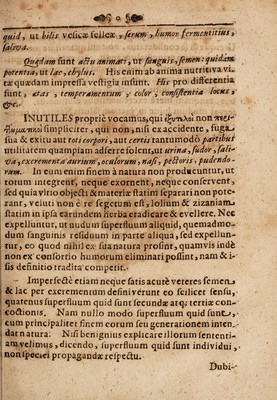 quid, ut bilis vesicæ fellex, serum, humor fermentitius,
saliva.
Quædam sunt actu animati, ut sanguis, semen: quidam
potentia, ut lac, chylus. His enim ab anima nutritiva vi-
tæ quædam impressa vestigia insunt. His pro differentia
sunt, ætas, temperamentum, color, consistentia locus,
&c.
INUTILES propriè vocamus, qui non
simpliciter, qui non, nisi ex accidente, fuga
sua & exitu aut toti corpori, aut certis tantumodò partibus
utilitatem quampiam adserre solent, ut urina, sudor, sali-
va, excrementa aurium, oculorum, nasi, pectoris. pudendo-
rum. In eum enim finem à natura non producuntur, ut
totum integrent, neque exornent, neque conservent,
sed quia vitio objecti & materiæ statim separari non pote-
rant, veluti non è re segetum est, lolium & zizaniam
statim in ipsa earundem herba eradicare & evellere. Nec
expelluntur, ut nudum superfluum aliquid, quemadmo-
dum sanguinis residuum in parte aliqua, sed expellun-
tur, eo quod nihil ex sua natura prosint, quamvis indè
non ex consortio humorum eliminari possint, nam & i-
sis definitio tradita competit.
Imperfectè etiam neque satis acutè veteres semen
& lac per excrementum definiverunt eo scilicet sensu,
quatenus superfluum quid sunt secundæ atq; tertiæ con-
coctionis. Nam nullo modo superfluum quid sunt,
cum principaliter finem eorum seu generationem inten-
dat natura. Nisi benignius explicare illorum sententi-
am velimus, dicendo, superfluum quid sunt individui,
non speciei propagandæ respectu.
Dubi-